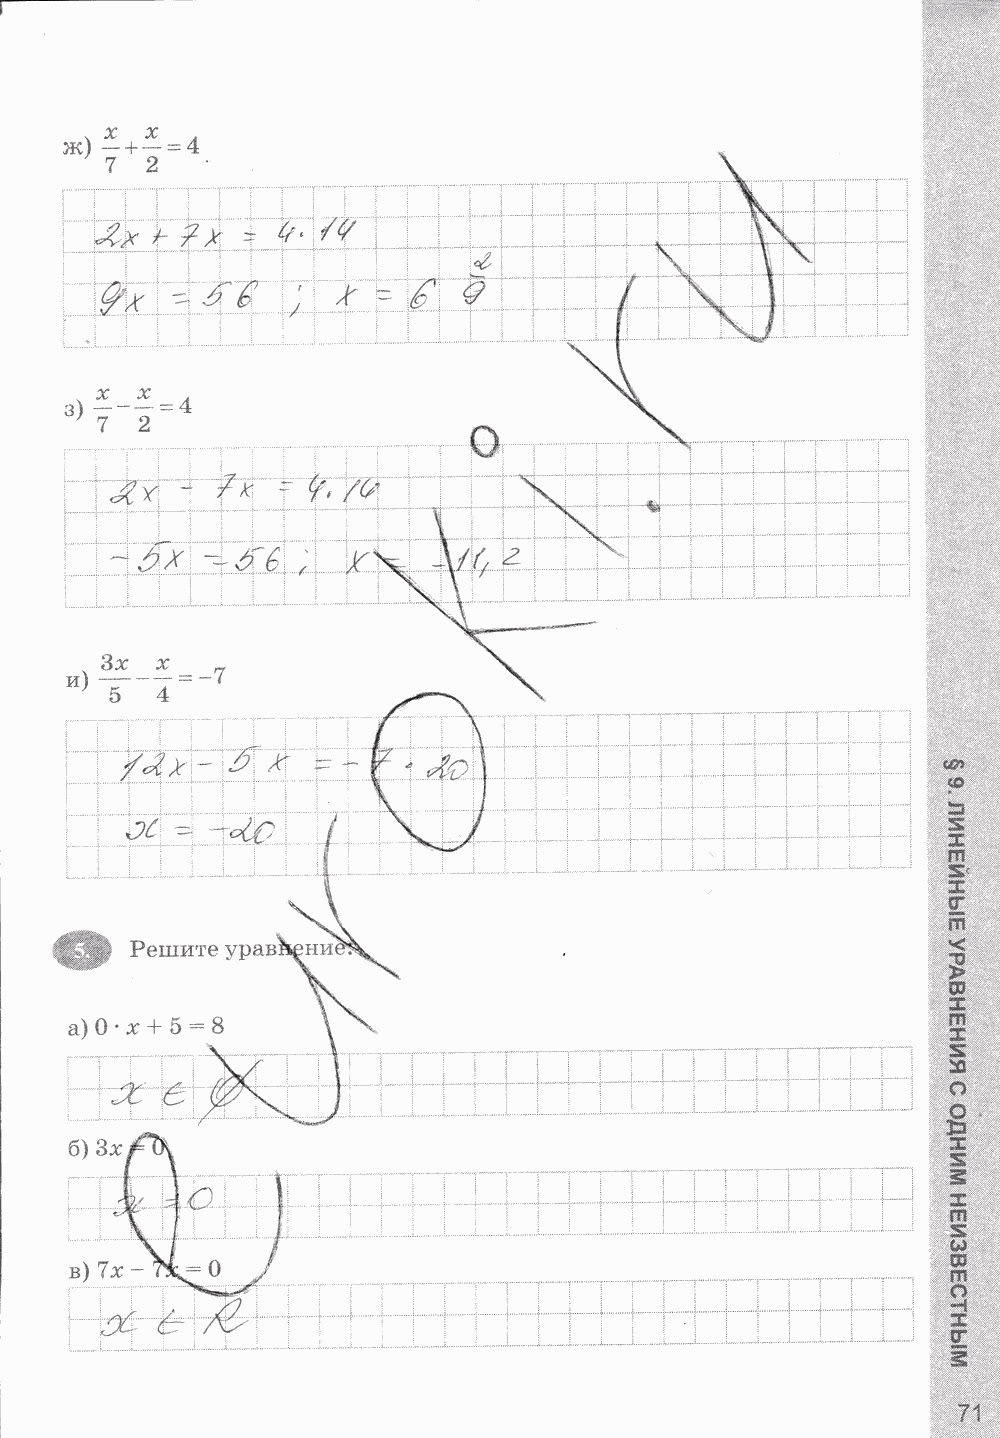 ж) x/7 + x/2 = 4
2x + 7x = 4·14
9x = 56 ; x = 6 2/9
з) x/7 − x/2 = 4
2x − 7x = 4·14
−5x = 56 ; x = −11,2
и) 3x/5 − x/4 = −7
12x − 5x = −7·20
x = −20
5. Решите уравнение:
а) 0 · x + 5 = 8
x ∈ ∅
б) 3x = 0
x = 0
в) 7x − 7x = 0
x ∈ R
§ 9. ЛИНЕЙНЫЕ УРАВНЕНИЯ С ОДНИМ НЕИЗВЕСТНЫМ
71